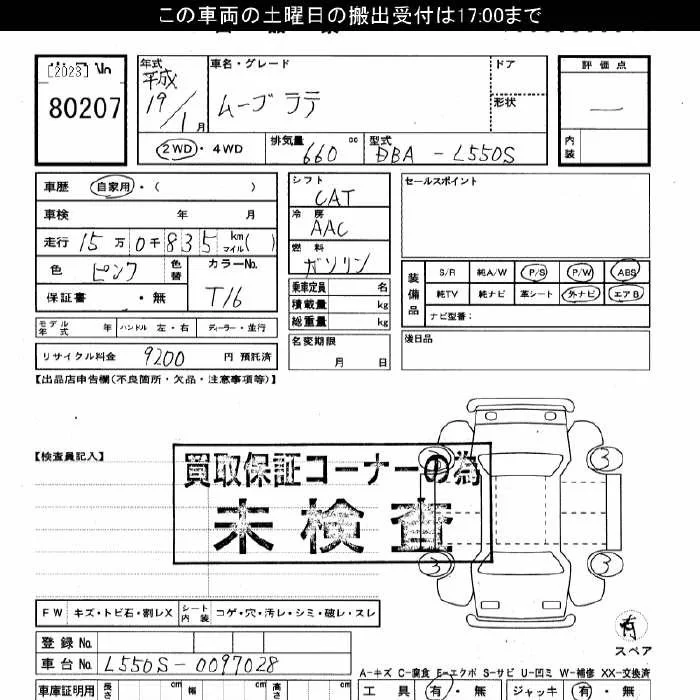 この車両の土曜日の搬出受付は17:00まで
[2023]
80207
年式
平成
19/1月
車名・グレード
ムーブ ラテ
ドア
形状
評価点
―
内装
2WD・4WD
排気量
660 cc
型式
DBA-L550S
車歴 自家用・( )
車検 年 月
走行 15万0千835 km マイル( )
色 ピンク 色替
カラーNo.
T16
保証書 ・無
モデル年式 年 ハンドル 左・右 ディーラー・並行
リサイクル料金 9200 円 預託済
シフト
CAT
冷房
AAC
燃料
ガソリン
乗車定員 名
積載量 kg
総重量 kg
名変期限
月 日
セールスポイント
装備品
S/R 純A/W P/S P/W ABS
純TV 純ナビ 革シート 外ナビ エアB
ナビ型番:
後日品
【出品店申告欄(不良箇所・欠品・注意事項等)】
【検査員記入】
買取保証コーナーの為
未検査
3 3
3 3
有
スペア
FW キズ・トビ石・割レX シート内装 コゲ・穴・汚レ・シミ・破レ・スレ
登録No.
車台No. L550S-0097028
A-キズ C-腐食 E-エクボ S-サビ U-凹ミ W-補修 XX-交換済
車庫証明用 長さ cm 幅 cm 高さ cm
工具 有・無 ジャッキ 有・無